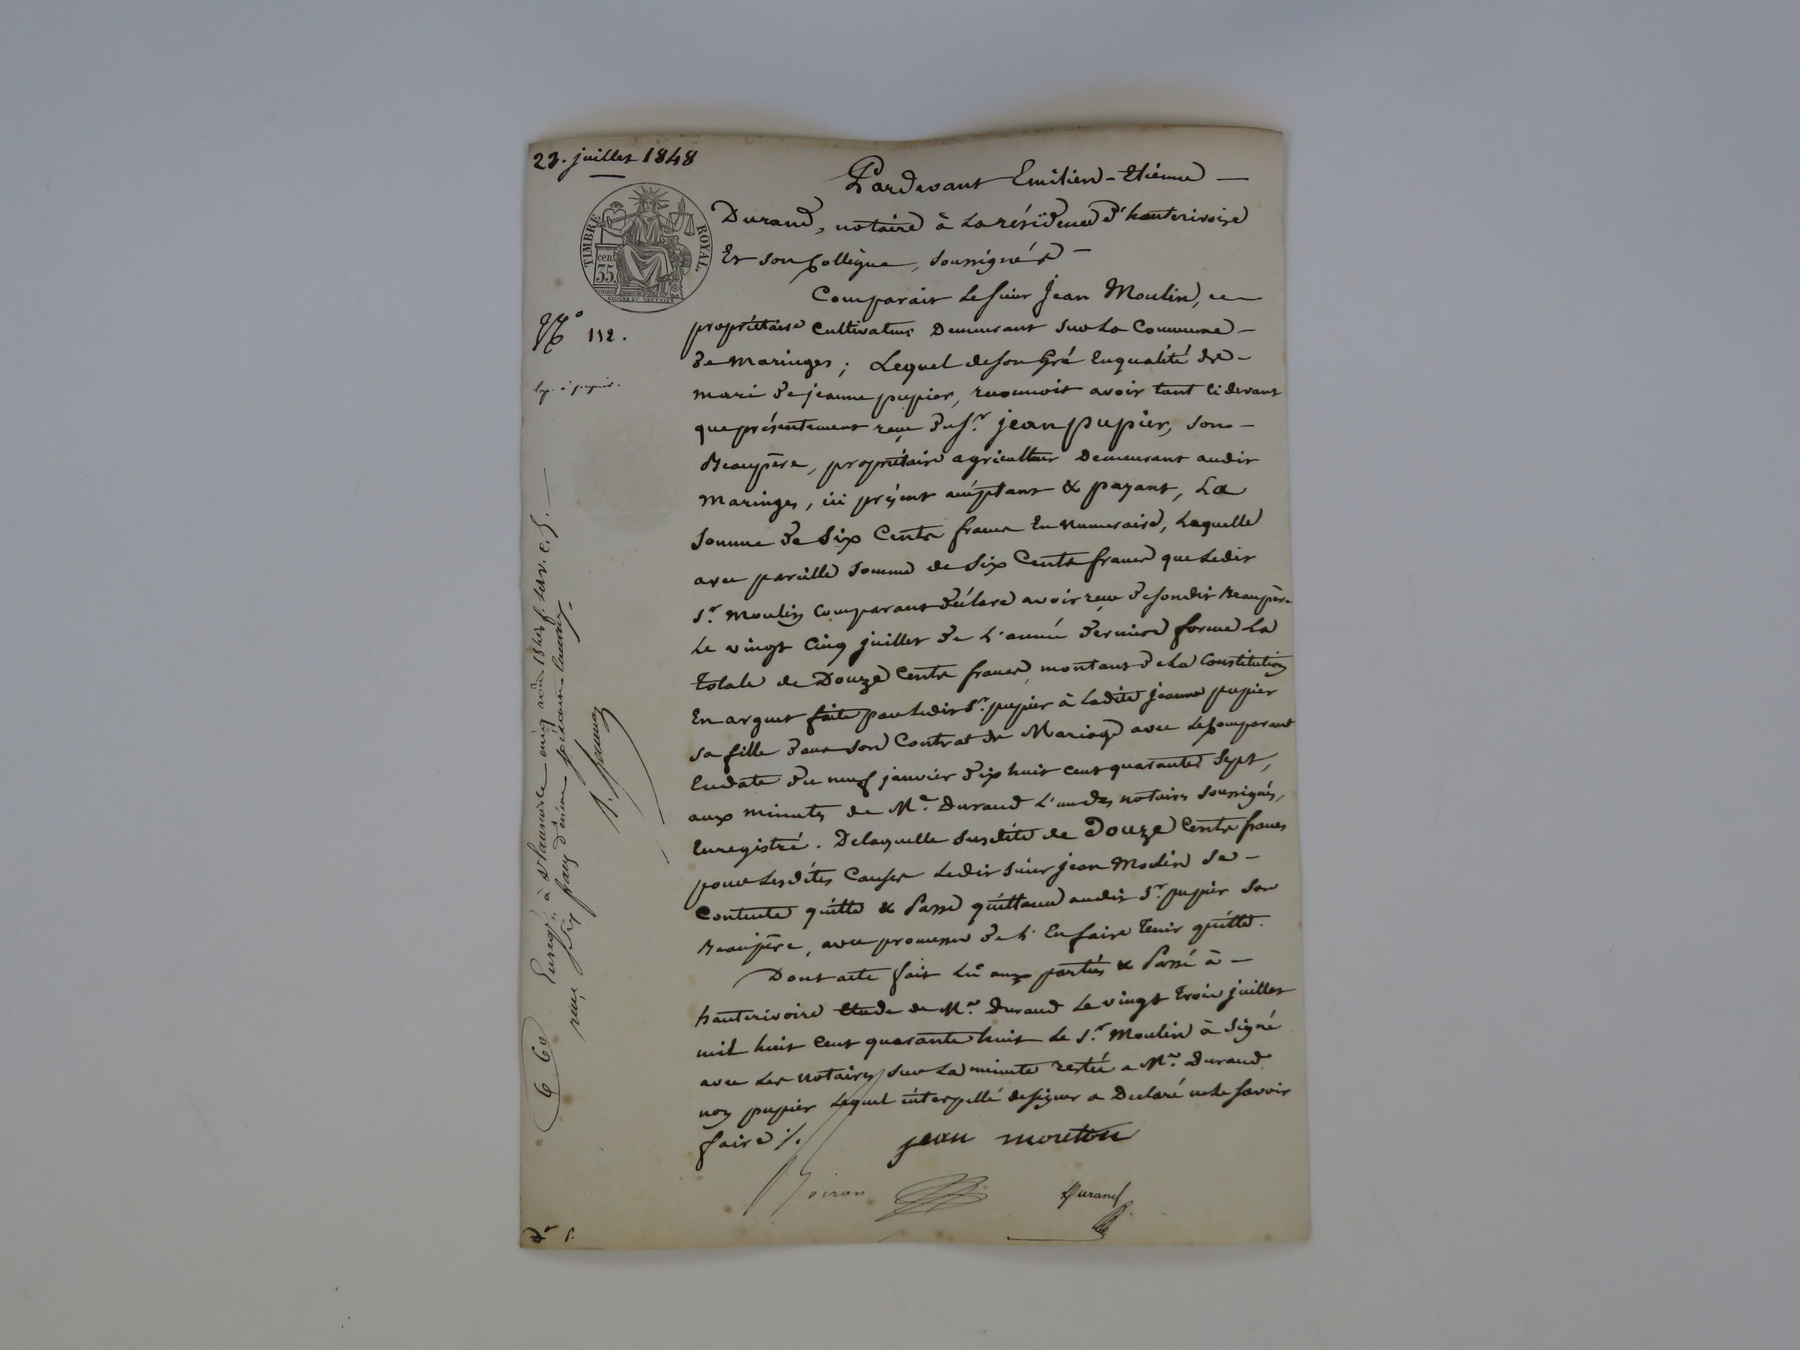 23. juillet 1848
TIMBRE ROYAL
cen. 35
N.º 112.
Pardevant Emilien-Etienne
Durand, notaire à la résidence d'hauterivoire
Et son Collègue, soussignés
Comparait le sieur Jean Moulin,
propriétaire cultivateur demeurant sur la Commune
de Maringes; Lequel de son Gré Enqualité de
mari de jeanne pupier, reconnoit avoir tant ci devant
que présentement reçu du Sr. jean pupier, son
Beaupère, propriétaire agriculteur demeurant audit
Maringes, ici présent acceptant & payant, La
Somme de Six Cents francs En numeraire, Laquelle
avec pareille somme de Six Cents francs que Ledit
Sr. Moulin Comparant déclare avoir reçu de sondit Beaupère
Le vingt Cinq juillet de l'année dernière forme La
totale de Douze Cents francs, montant de La Constitution
En argent faite par Ledit Sr. pupier à Ladite jeanne pupier
sa fille dans son Contrat de Mariage avec Le Comparant
Endate du neuf janvier dix huit cent quarante Sept,
aux minutes de Me. Durand L'un des notaires soussignés,
Enregistré. De laquelle Susdite de Douze Cents francs
pour Lesdites Causes Ledit sieur jean Moulin se
Contente quitte & Passe quittance audit Sr. pupier Son
Beaupère, avec promesse de L'En faire tenir quitte.
Dont acte fait Lû aux parties & Passé à
hauterivoire Etude de Me. Durand Le vingt trois juillet
mil huit cent quarante huit Le Sr. Moulin à Signé
avec Les notaires sur La minute restée a Me. Durand
non pupier Lequel interpellé designer a Declaré ne le Savoir
faire ./.
jean moulin
Durand